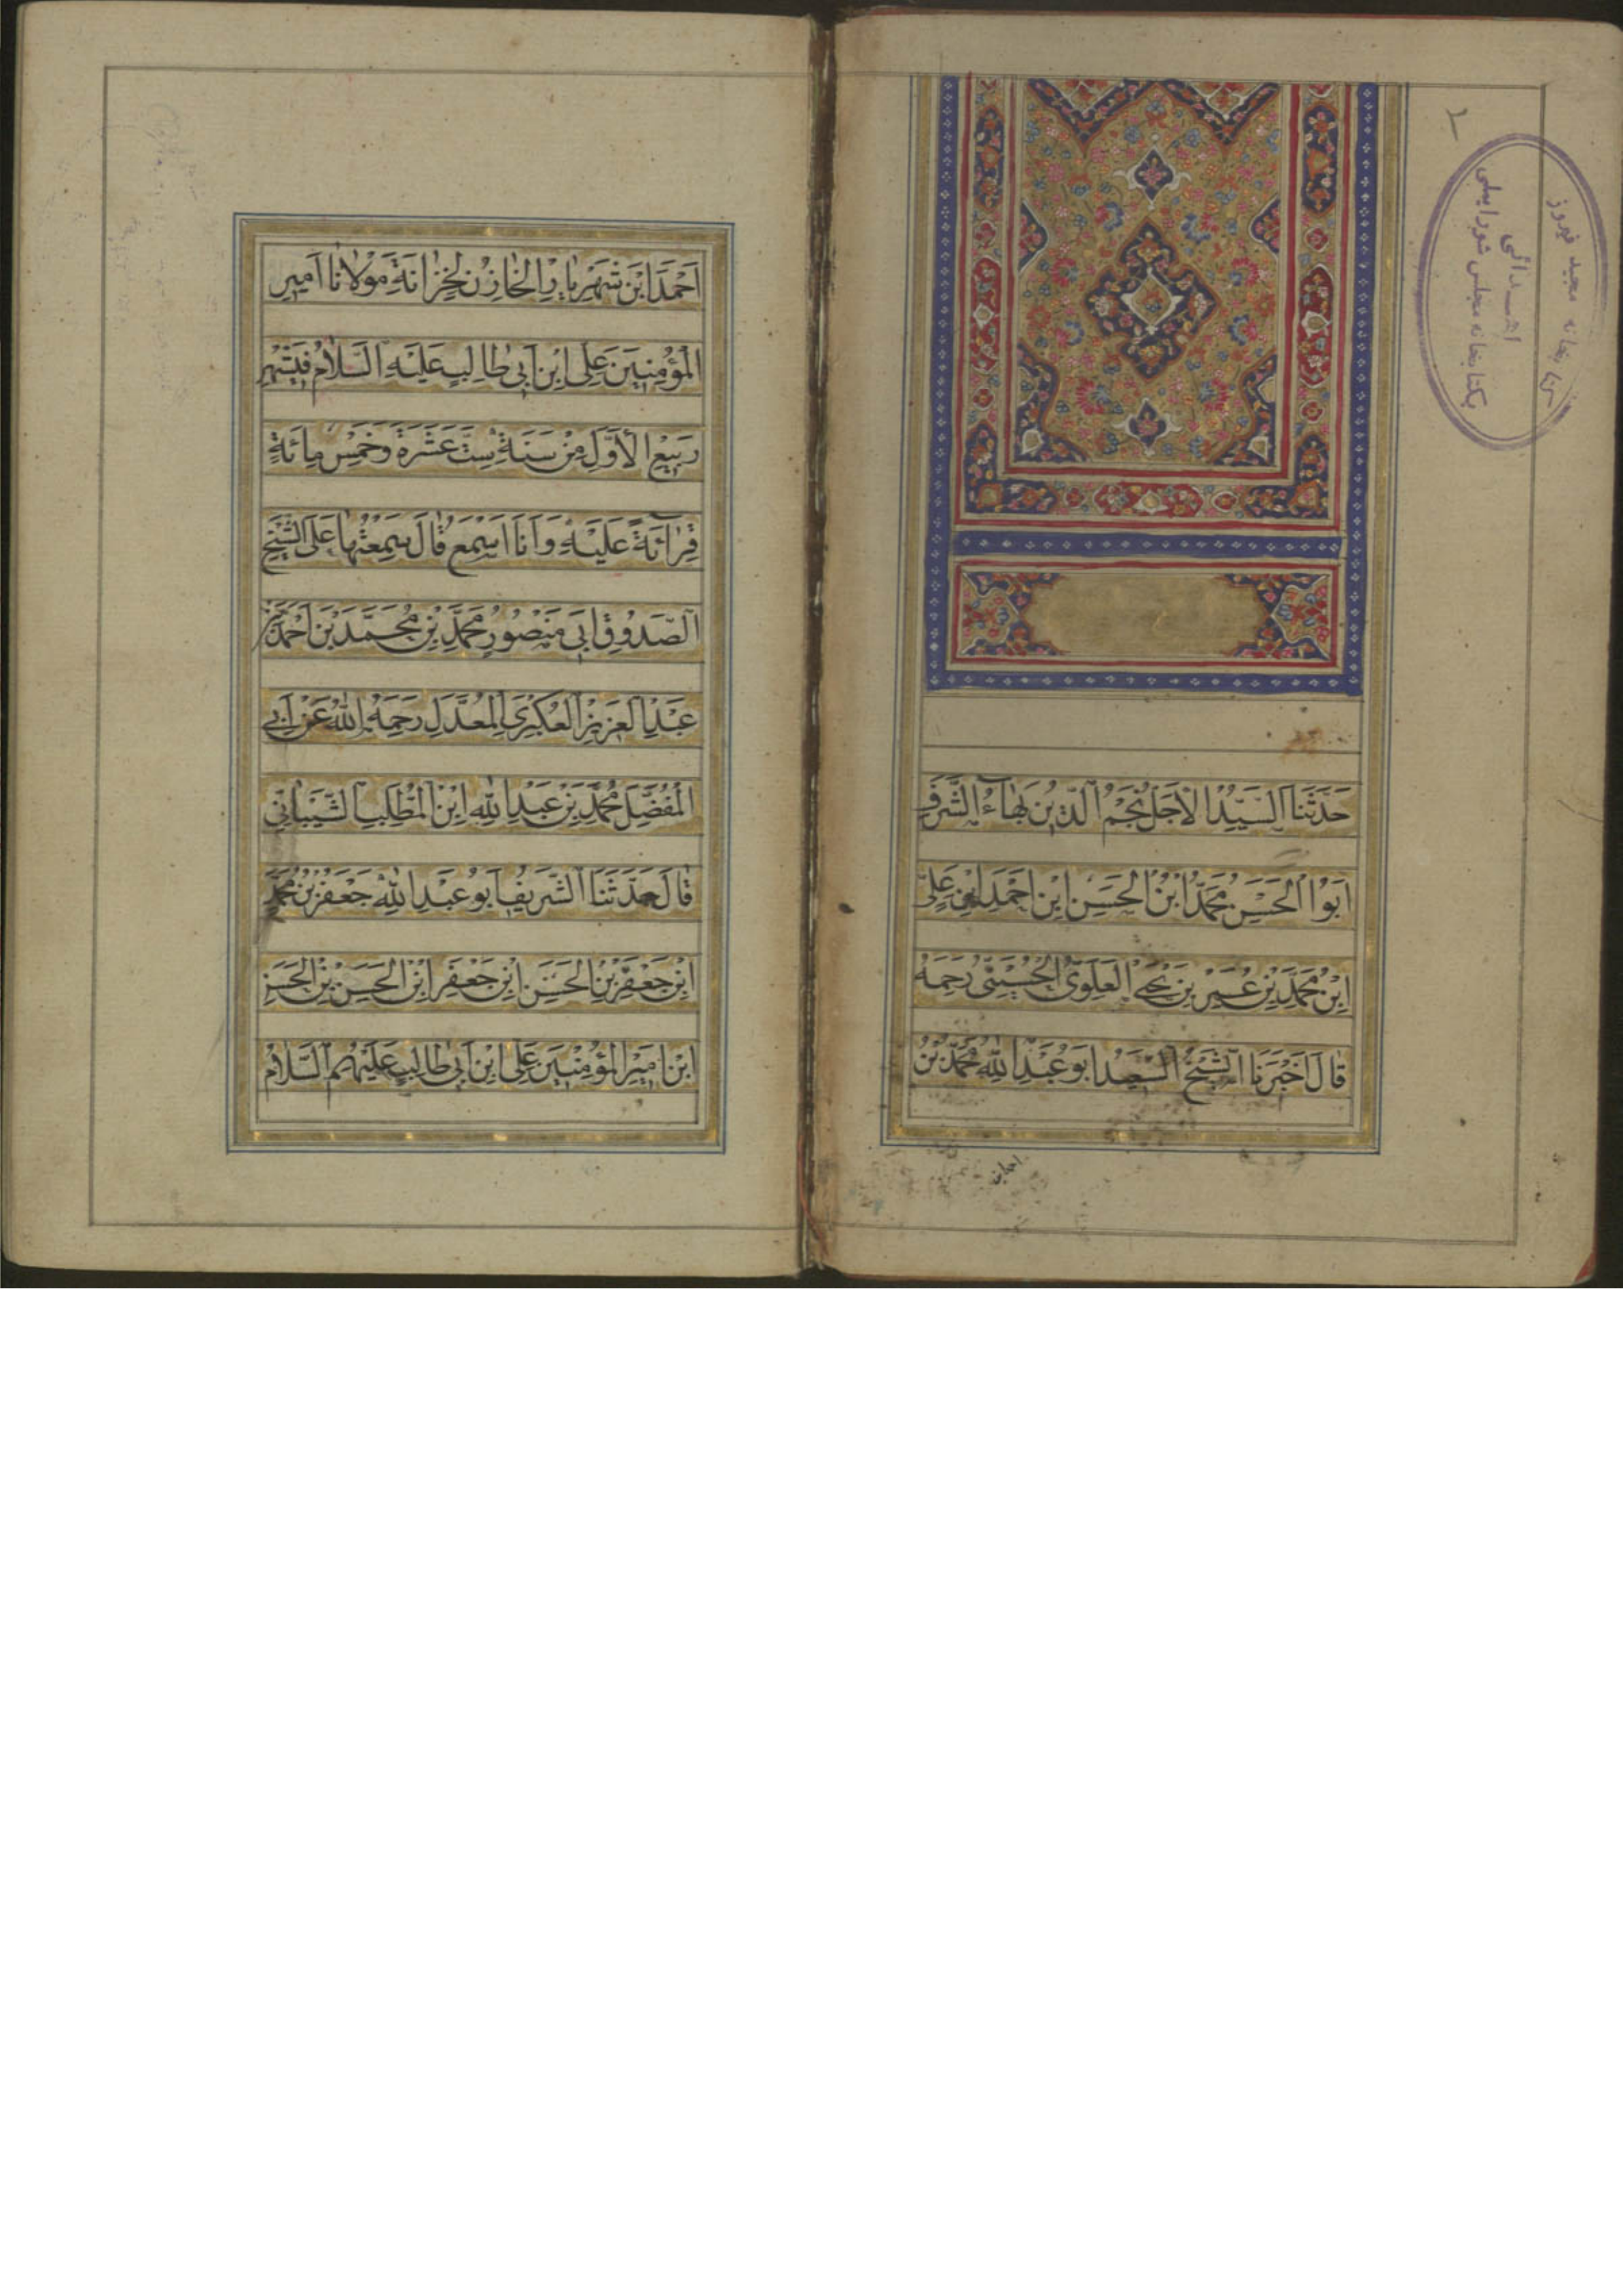 حَدَّثَنَا السَّيِّدُ الْاَجَلُّ نَجْمُ الدّينِ بَهٰاءُ الشَّرَفِ
اَبُوا الْحَسَنِ مُحَمَّدُ ابْنُ الْحَسَنِ ابْنِ اَحْمَدَ ابْنِ عَلِيِّ
ابْنِ مُحَمَّدِ بْنِ عُمَرَ بْنِ يَحْيَى الْعَلَوِيُّ الْحُسَيْنِيُّ رَحِمَهُ
قٰالَ اَخْبَرَنَا الشَّيْخُ السَّعيدُ اَبُو عَبْدِ اللّٰهِ مُحَمَّدُ بْنُ
اَحْمَدَ ابْنِ شَهْرِيٰارِ الْخٰازِنُ لِخِزٰانَةِ مَوْلٰانٰا اَميرِ
الْمُؤْمِنينَ عَلِيِّ ابْنِ اَبي طٰالِبٍ عَلَيْهِ السَّلٰامُ في شَهْرِ
رَبيعِ الْاَوَّلِ مِنْ سَنَةِ سِتَّ عَشَرَةَ وَخَمْسِ مِائَةٍ
قِرٰآئَةً عَلَيْهِ وَ اَنَا اَسْمَعُ قٰالَ سَمِعْتُهٰا عَلَى الشَّيْخِ
الصَّدُوقِ اَبي مَنْصُورٍ مُحَمَّدِ بْنِ مُحَمَّدِ بْنِ اَحْمَدَ بْنِ
عَبْدِ الْعَزيزِ الْعُكْبَرِيِّ الْمُعَدَّلِ رَحِمَهُ اللّٰهُ عَنْ اَبي
الْمُفَضَّلِ مُحَمَّدِ بْنِ عَبْدِ اللّٰهِ ابْنِ الْمُطَّلِبِ الشَّيْبٰانِيِّ
قٰالَ حَدَّثَنَا الشَّريفُ اَبُو عَبْدِ اللّٰهِ جَعْفَرُ بْنُ مُحَمَّدِ
ابْنِ جَعْفَرِ بْنِ الْحَسَنِ ابْنِ جَعْفَرِ ابْنِ الْحَسَنِ بْنِ الْحَسَنِ
ابْنِ اَميرِ الْمُؤْمِنينَ عَلِيِّ ابْنِ اَبي طٰالِبٍ عَلَيْهِمُ السَّلٰامُ
كتابخانه مجيد فيروز
اهـــدائى
بكتابخانه مجلس شوراى ملى